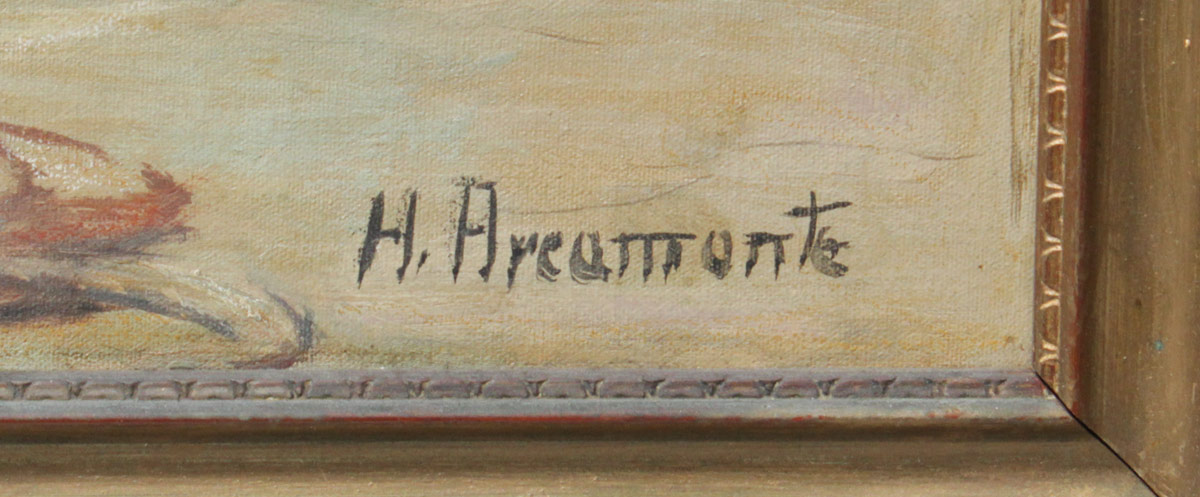 H. Arcamonte